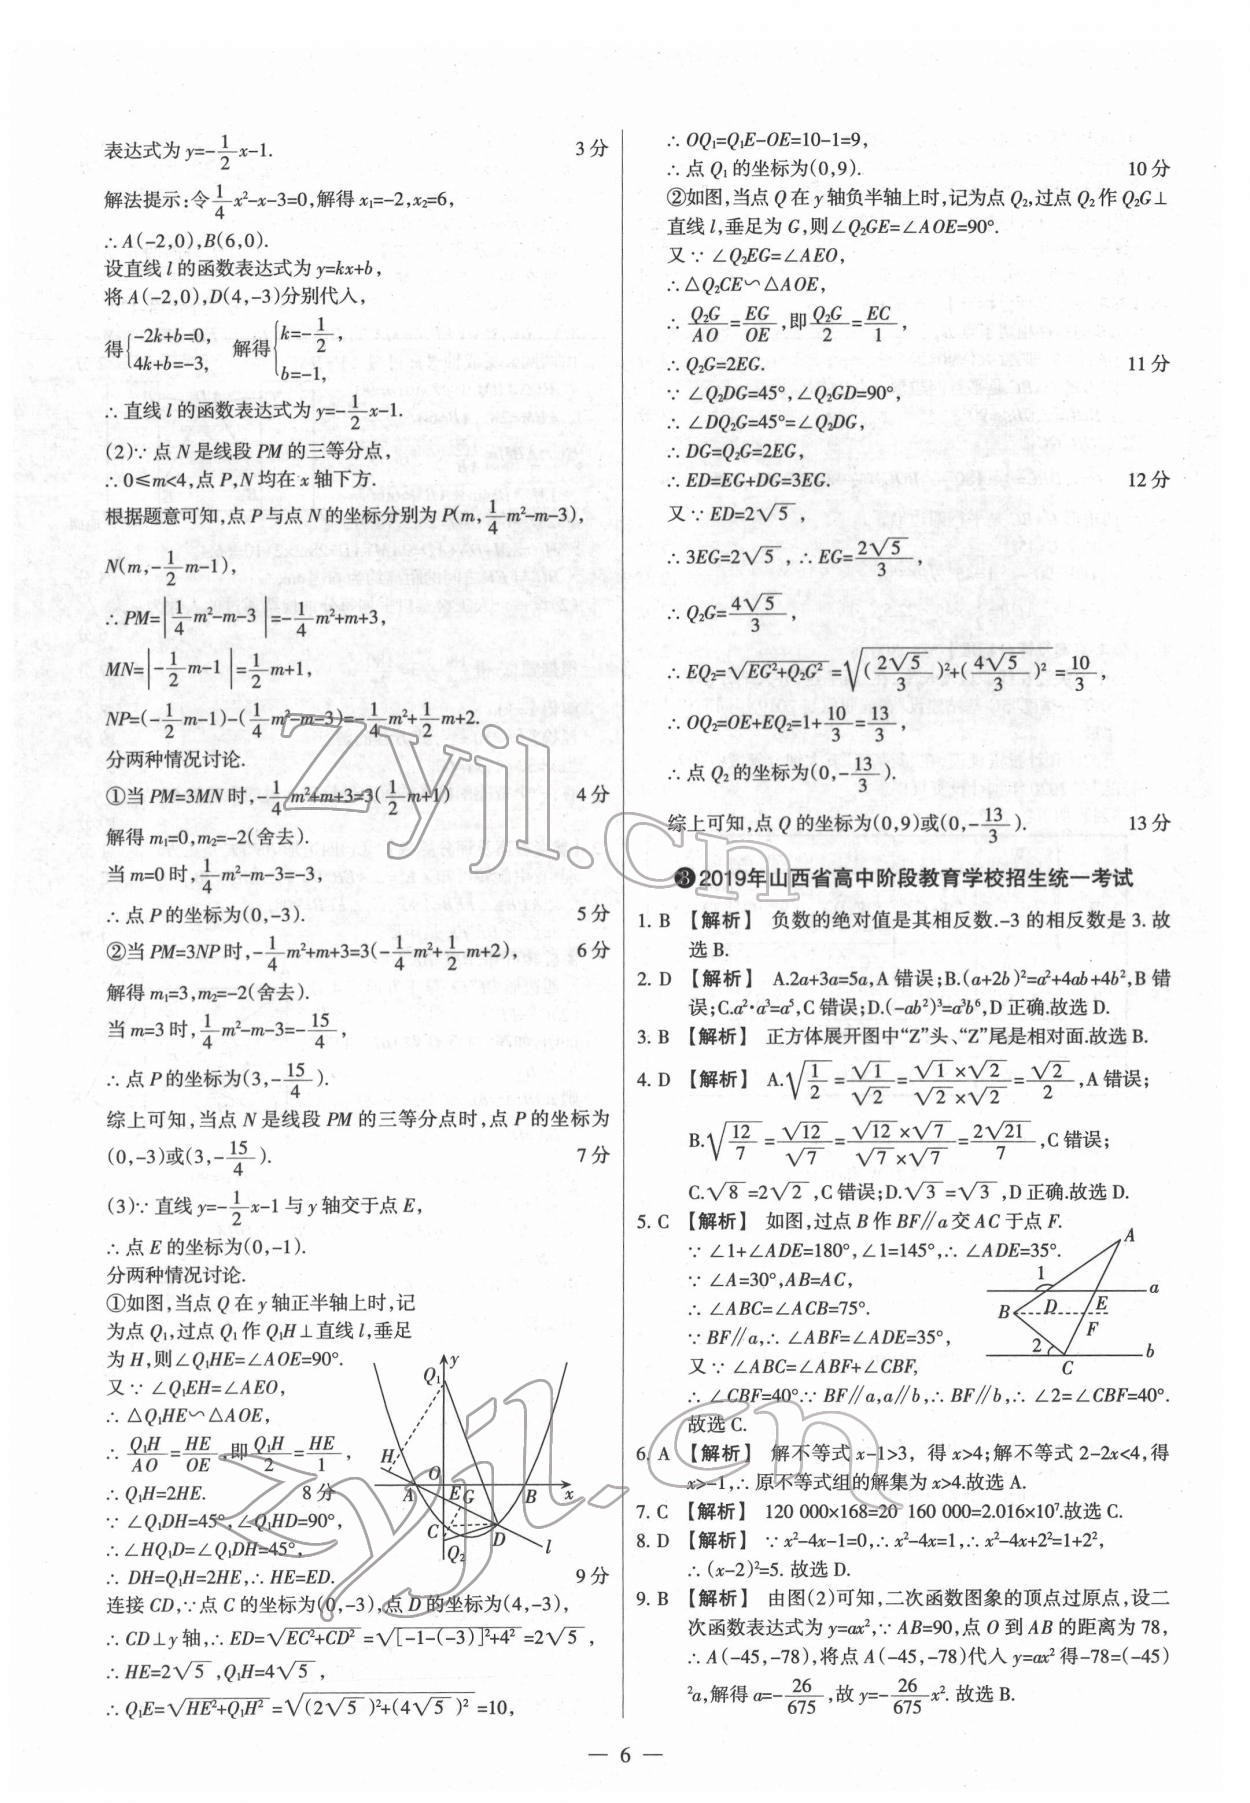 表达式为y=-1/2x-1. 3分
解法提示:令1/4x²-x-3=0,解得x₁=-2,x₂=6,
∴A(-2,0),B(6,0).
设直线l的函数表达式为y=kx+b,
将A(-2,0),D(4,-3)分别代入,
得{-2k+b=0, 4k+b=-3, 解得{k=-1/2, b=-1,
∴直线l的函数表达式为y=-1/2x-1.
(2)∵点N是线段PM的三等分点,
∴0≤m<4,点P,N均在x轴下方.
根据题意可知,点P与点N的坐标分别为P(m,1/4m²-m-3),
N(m,-1/2m-1),
∴PM=|1/4m²-m-3|=-1/4m²+m+3,
MN=|-1/2m-1|=1/2m+1,
NP=(-1/2m-1)-(1/4m²-m-3)=-1/4m²+1/2m+2.
分两种情况讨论.
①当PM=3MN时,-1/4m²+m+3=3(1/2m+1) 4分
解得m₁=0,m₂=-2(舍去).
当m=0时,1/4m²-m-3=-3,
∴点P的坐标为(0,-3). 5分
②当PM=3NP时,-1/4m²+m+3=3(-1/4m²+1/2m+2), 6分
解得m₁=3,m₂=-2(舍去).
当m=3时,1/4m²-m-3=-15/4,
∴点P的坐标为(3,-15/4).
综上可知,当点N是线段PM的三等分点时,点P的坐标为
(0,-3)或(3,-15/4). 7分
(3)∵直线y=-1/2x-1与y轴交于点E,
∴点E的坐标为(0,-1).
分两种情况讨论.
①如图,当点Q在y轴正半轴上时,记
为点Q₁,过点Q₁作Q₁H⊥直线l,垂足
为H,则∠Q₁HE=∠AOE=90°.
又∵∠Q₁EH=∠AEO,
∴△Q₁HE∽△AOE,
∴Q₁H/AO=HE/OE,即Q₁H/2=HE/1,
∴Q₁H=2HE. 8分
∵∠Q₁DH=45°,∠Q₁HD=90°,
∴∠HQ₁D=∠Q₁DH=45°,
∴DH=Q₁H=2HE,∴HE=ED. 9分
连接CD,∵点C的坐标为(0,-3),点D的坐标为(4,-3),
∴CD⊥y轴,∴ED=√(EC²+CD²)=√([-1-(-3)]²+4²)=2√5,
∴HE=2√5,Q₁H=4√5,
∴Q₁E=√(HE²+Q₁H²)=√((2√5)²+(4√5)²)=10,
Q₁ y
H
A O E B x
G
C
D l
Q₂
∴OQ₁=Q₁E-OE=10-1=9,
∴点Q₁的坐标为(0,9). 10分
②如图,当点Q在y轴负半轴上时,记为点Q₂,过点Q₂作Q₂G⊥
直线l,垂足为G,则∠Q₂GE=∠AOE=90°.
又∵∠Q₂EG=∠AEO,
∴△Q₂CE∽△AOE,
∴Q₂G/AO=EG/OE,即Q₂G/2=EC/1,
∴Q₂G=2EG. 11分
∵∠Q₂DG=45°,∠Q₂GD=90°,
∴∠DQ₂G=45°=∠Q₂DG,
∴DG=Q₂G=2EG,
∴ED=EG+DG=3EG. 12分
又∵ED=2√5,
∴3EG=2√5,∴EG=2√5/3,
∴Q₂G=4√5/3,
∴EQ₂=√(EG²+Q₂G²)=√((2√5/3)²+(4√5/3)²)=10/3,
∴OQ₂=OE+EQ₂=1+10/3=13/3,
∴点Q₂的坐标为(0,-13/3).
综上可知,点Q的坐标为(0,9)或(0,-13/3). 13分
❸2019年山西省高中阶段教育学校招生统一考试
1. B 【解析】 负数的绝对值是其相反数.-3的相反数是3.故
选B.
2. D 【解析】 A.2a+3a=5a,A错误;B.(a+2b)²=a²+4ab+4b²,B错
误;C.a²·a³=a⁵,C错误;D.(-ab²)³=a³b⁶,D正确.故选D.
3. B 【解析】 正方体展开图中“Z”头、“Z”尾是相对面.故选B.
4. D 【解析】 A.√(1/2)=√1/√2=(√1×√2)/(√2×√2)=√2/2,A错误;
B.√(12/7)=√12/√7=(√12×√7)/(√7×√7)=2√21/7,C错误;
C.√8=2√2,C错误;D.√3=√3,D正确.故选D.
5. C 【解析】 如图,过点B作BF∥a交AC于点F.
∵∠1+∠ADE=180°,∠1=145°,∴∠ADE=35°.
∵∠A=30°,AB=AC,
∴∠ABC=∠ACB=75°.
∵BF∥a,∴∠ABF=∠ADE=35°,
又∵∠ABC=∠ABF+∠CBF,
∴∠CBF=40°∵BF∥a,a∥b,∴BF∥b,∴∠2=∠CBF=40°.
故选C.
A
1 a
B D E
F
2 b
C
6. A 【解析】 解不等式x-1>3,得x>4;解不等式2-2x<4,得
x>-1,∴原不等式组的解集为x>4.故选A.
7. C 【解析】 120 000×168=20 160 000=2.016×10⁷.故选C.
8. D 【解析】 ∵x²-4x-1=0,∴x²-4x=1,∴x²-4x+2²=1+2²,
∴(x-2)²=5.故选D.
9. B 【解析】 由图(2)可知,二次函数图象的顶点过原点,设二
次函数表达式为y=ax²,∵AB=90,点O到AB的距离为78,
∴A(-45,-78),将点A(-45,-78)代入y=ax²得-78=(-45)
²a,解得a=-26/675,故y=-26/675x².故选B.
— 6 —
zyjl.cn
zyjl.cn